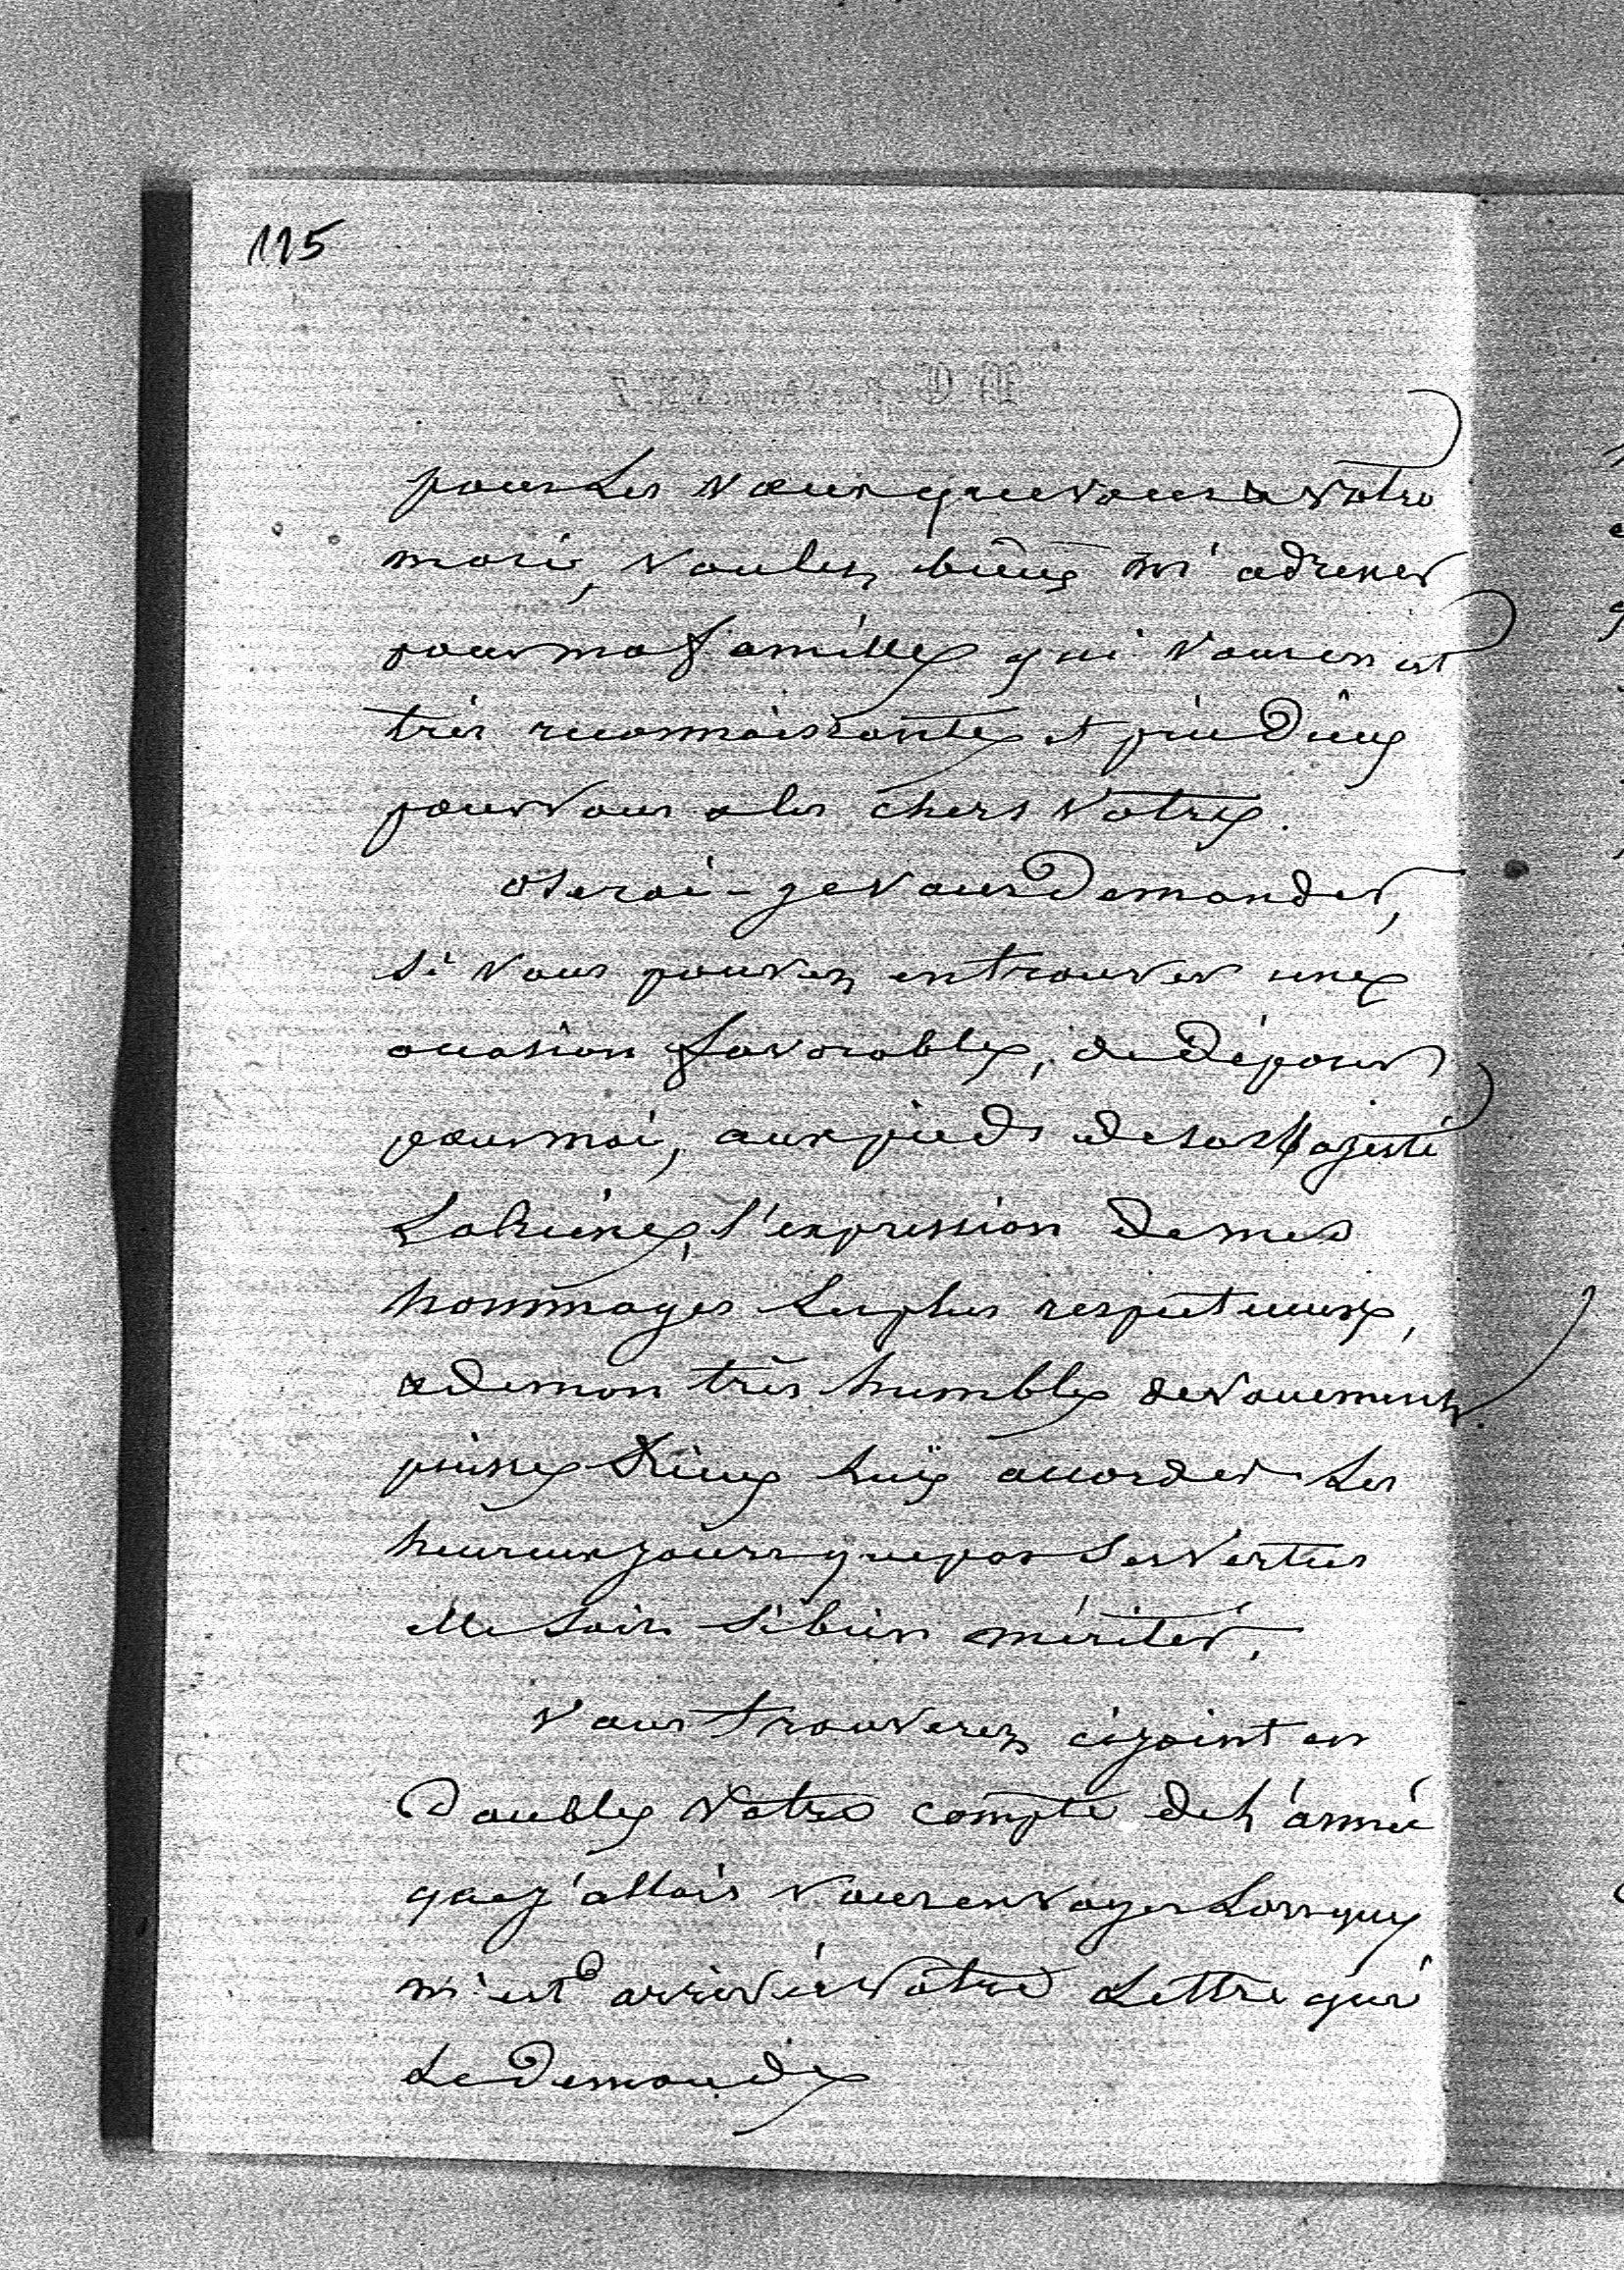 115
pour les vœux que vous & votre
mari, voulez bien m'adresser
pour ma famille qui vous en est
très reconnaissante et prie Dieu
pour vous & les chers votres.
Oserai-je vous demander,
si vous pouvez en trouver une
occasion favorable, de déposer
pour moi, aux pieds de sa Majesté
La Reine, l'expression de mes
hommages les plus respectueux,
& de mon très humble devouement.
puisse Dieu lui accorder les
heureux jours que par ses vertus
elle sait si bien mériter.
Vous trouverez cijoint en
Double votre compte de l'année
que j'allais vous envoyer lorsque
m'est arrivée votre lettre qui
le demande